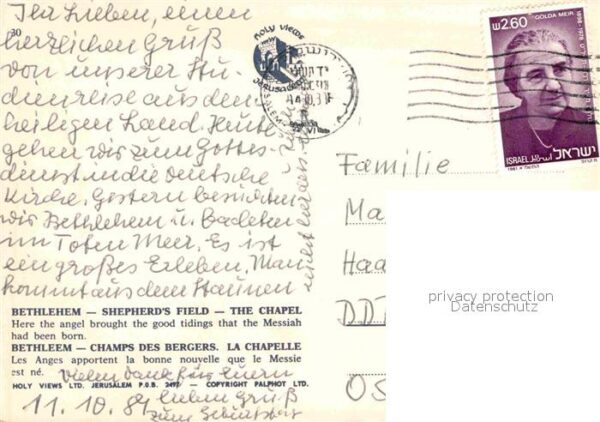 Ihr Lieben, einen
herzlichen Gruß
30
von unserer Stu
dienreise aus dem
heiligen Land. Heute
gehen wir zum Gottes-
dienst in die deutsche
Kirche. Gestern besuchten
wir Bethlehem u. Badeten
im Toten Meer. Es ist
ein großes Erleben. Man
kommt aus dem Staunen
nicht heraus.
BETHLEHEM — SHEPHERD'S FIELD — THE CHAPEL
Here the angel brought the good tidings that the Messiah
had been born.
BETHLEEM — CHAMPS DES BERGERS. LA CHAPELLE
Les Anges apportent la bonne nouvelle que le Messie
est né.
Vielen Dank für Euern
HOLY VIEWS LTD. JERUSALEM P.O.B. 2497 — COPYRIGHT PALPHOT LTD.
11.10.84 lieben Gruß
zum Geburtstag
HOLY VIEWS
JERUSALEM
₪2.60
GOLDA MEIR
1898-1978
ISRAEL اسرائيل ישראל
Familie
Ma
Haa
DDT
OS
privacy protection
Datenschutz